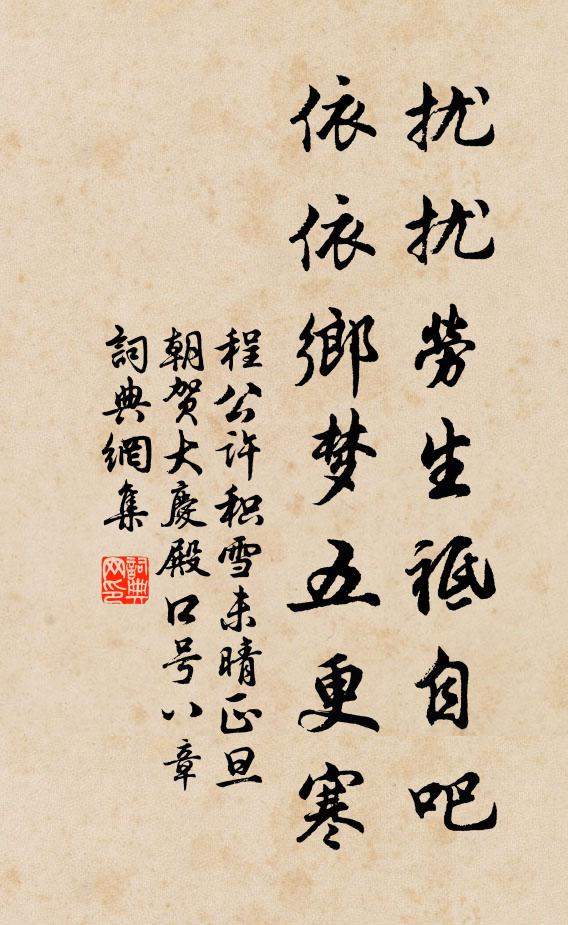 扰扰劳生祗自吧
依依鄉梦五更寒
程公许积雪未晴正旦
朝贺大慶殿口号八章
詞典網集
詞典网印